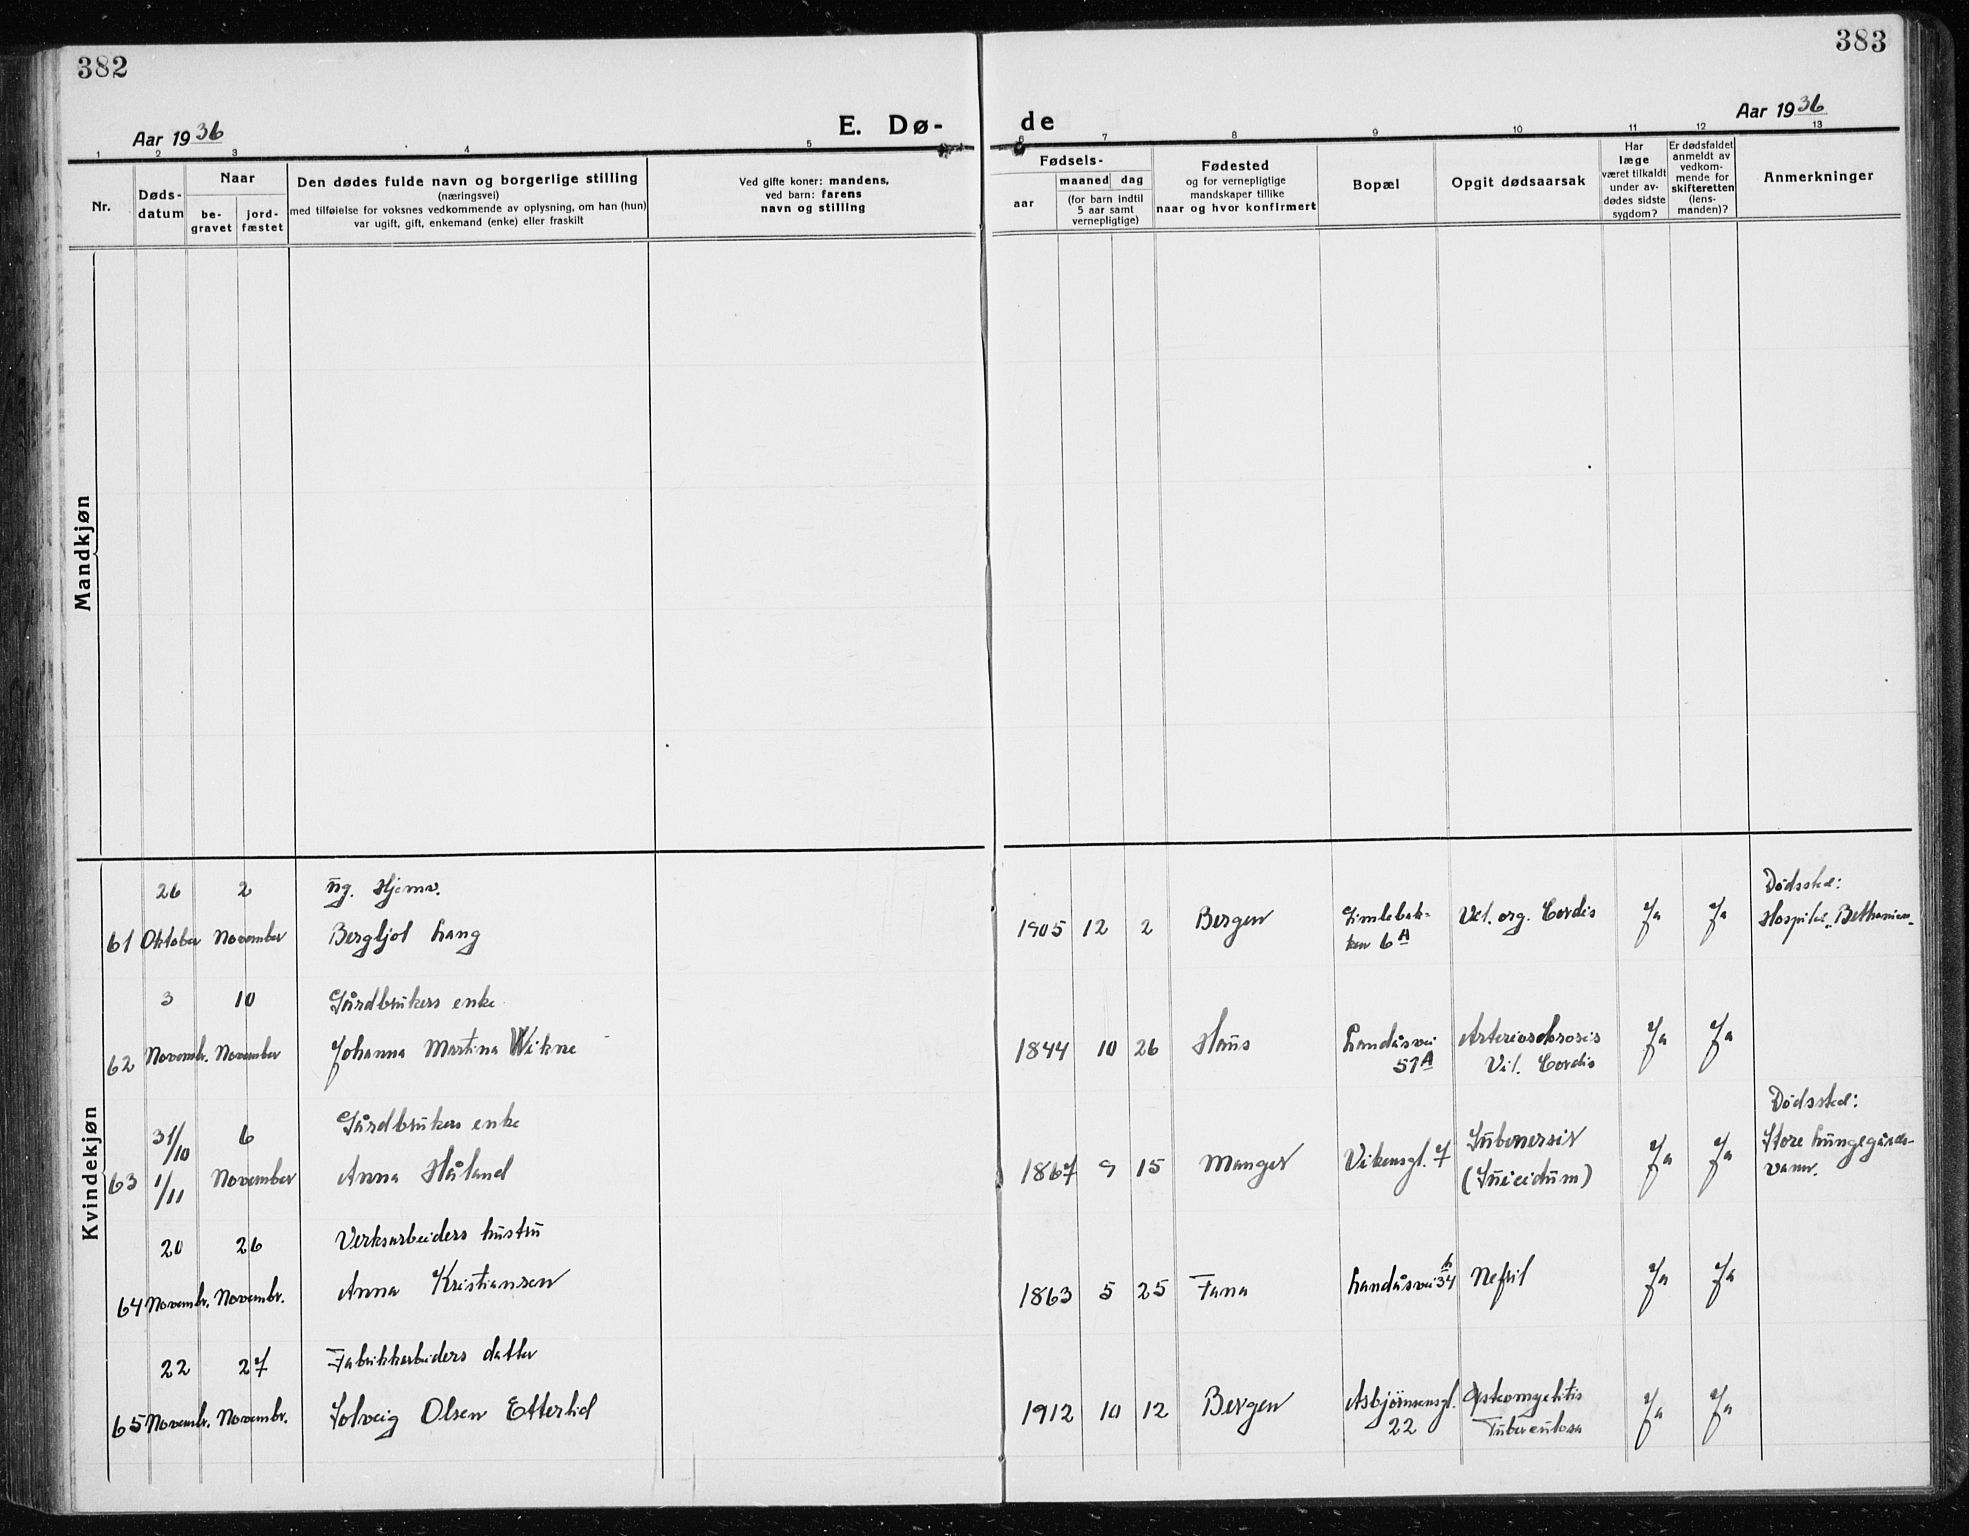 382
383
Aar 1936
E. Dø-
de
Aar 1936
1 2 3 4 5 6 7 8 9 10 11 12 13
Nr.
Døds-
datum
Naar
be-
gravet
jord-
fæstet
Den dødes fulde navn og borgerlige stilling
(næringsvei)
med tilføielse for voksnes vedkommende av oplysning, om han (hun)
var ugift, gift, enkemand (enke) eller fraskilt
Ved gifte koner: mandens,
ved barn: farens
navn og stilling
Fødsels-
aar
maaned dag
(for barn indtil
5 aar samt
vernepligtige)
Fødested
og for vernepligtige
mandskaper tillike
naar og hvor konfirmert
Bopæl
Opgit dødsaarsak
Har
læge
været tilkaldt
under av-
dødes sidste
sygdom?
Er dødsfaldet
anmeldt av
vedkom-
mende for
skifteretten
(lens-
manden)?
Anmerkninger
Mandkjøn
Kvindekjøn
26 2 ug. Hjemv. Dødssted:
61 Oktober November Bergljot Lang 1905 12 2 Bergen Vit. org. Cordis Ja Ja Hospitel „Bethanien„
ken 6A
3 10 Gårdbrukers enke
62 Novembr. November Johanna Martina Wikne 1844 10 26 Haus Landåsvei Arteriosclerosis Ja Ja
57A Vit. Cordis
Gårdbrukers enke Dødssted:
31/10 6 Store Lungegårds-
63 1/11 November Anna Håland 1867 9 15 Manger Vikensgt. 7 (Suicidium) Ja Ja vann.
20 26 Verksarbeiders hustru
64 Novembr. Novembr. Anna Kristiansen 1863 5 25 Fana Landåsvei 34 Nefrit Ja Ja
22 27 Fabrikkarbeiders datter
65 Novembr. Novembr. Solveig Olsen Etterlid 1912 10 12 Bergen Asbjørnsensgt. Osteomyelitis Ja Ja
22 Tuberculosa